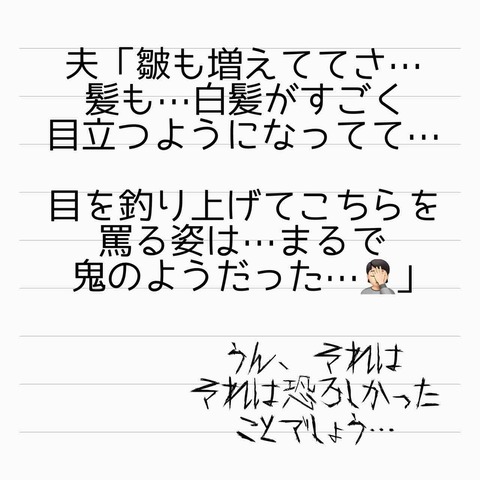 夫「皺も増えててさ…
髪も…白髪がすごく
目立つようになってて…
目を釣り上げてこちらを
罵る姿は…まるで
鬼のようだった…🤦🏻」
うん、それは
それは恐ろしかった
ことでしょう…